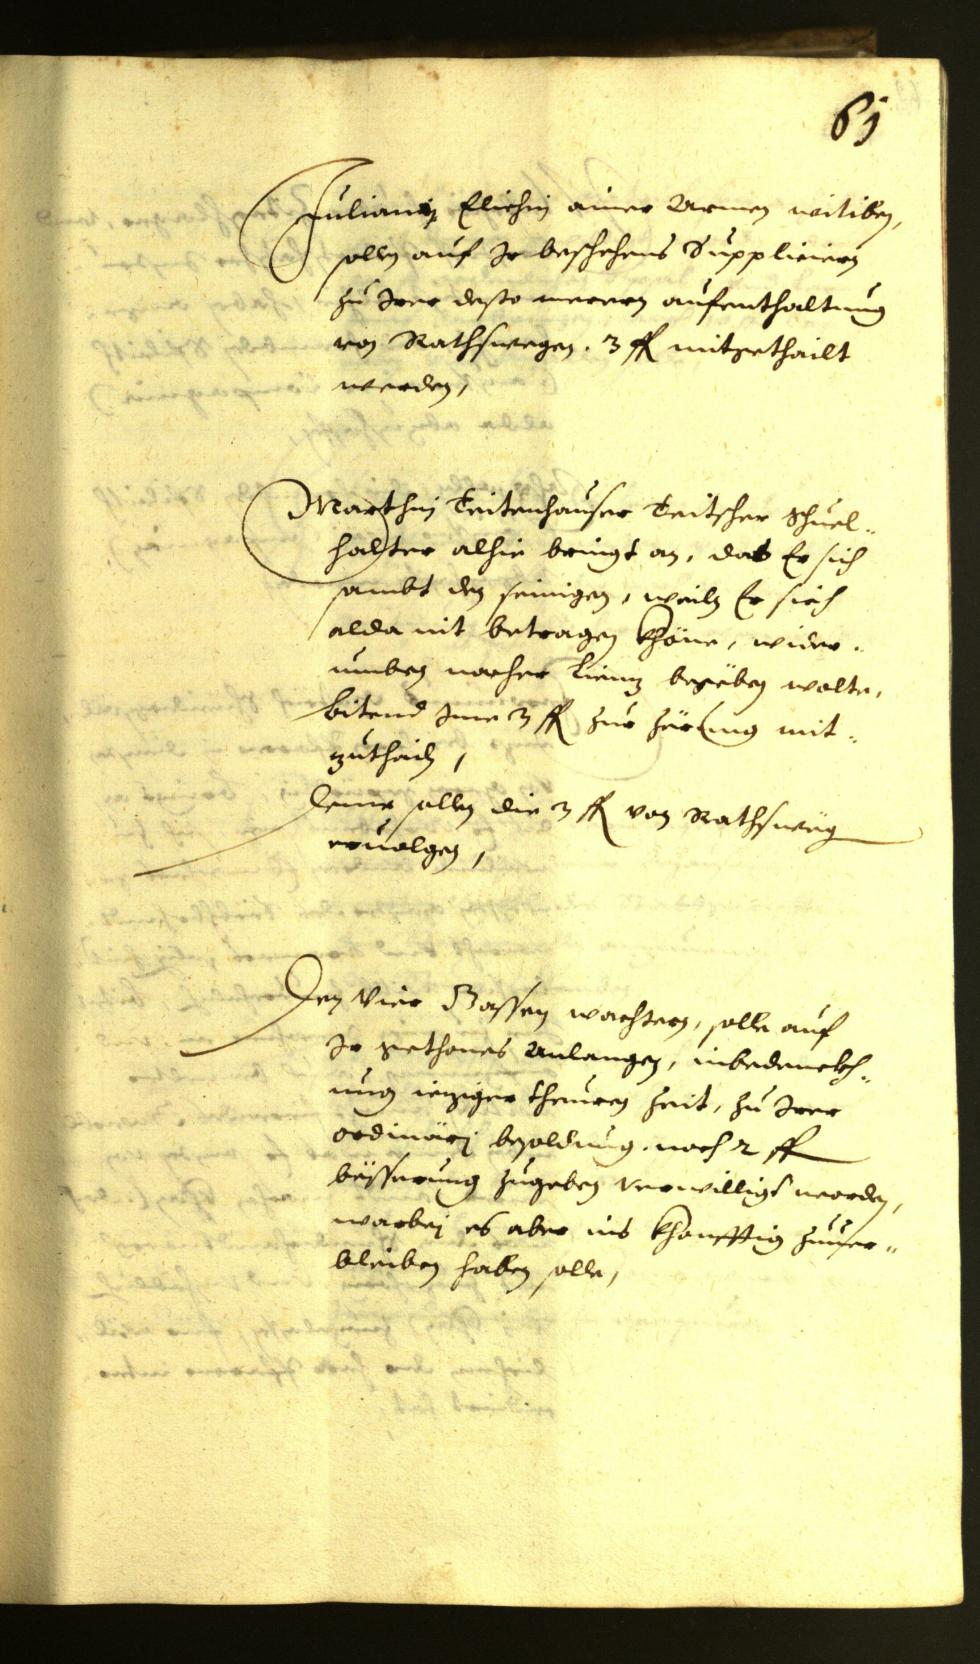 65
Juliana Elichin ainer Armen witiben,
sollen auf Ir beschehens Suppliciern
zu Irer desto merern aufenthaltung
von Rathswegen. 3 ff mitgethailt
werden,
Marthin Teitenhauser Teitscher Schuel-
halter alhie bringt an, das Er sich
sambt den seinigen, weiln Er sich
alda nit betragen khöne, wider-
umben nacher Lienz begeben wolte,
bitend Ime 3 ff zur zörung mit-
zuthailn,
Deme sollen die 3 ff von Rathsweg
ervolgen,
Den Vier Gassen wachtern, solle auf
Ir gethones Anlangen, inbedenckh-
ung ieziger theuren Zeit, zu Irer
ordinärj besoldung. noch 2 ff
besserung zugeben verwilligt worden,
warbej es aber ins khonfftig zuver-
bleiben haben solle,